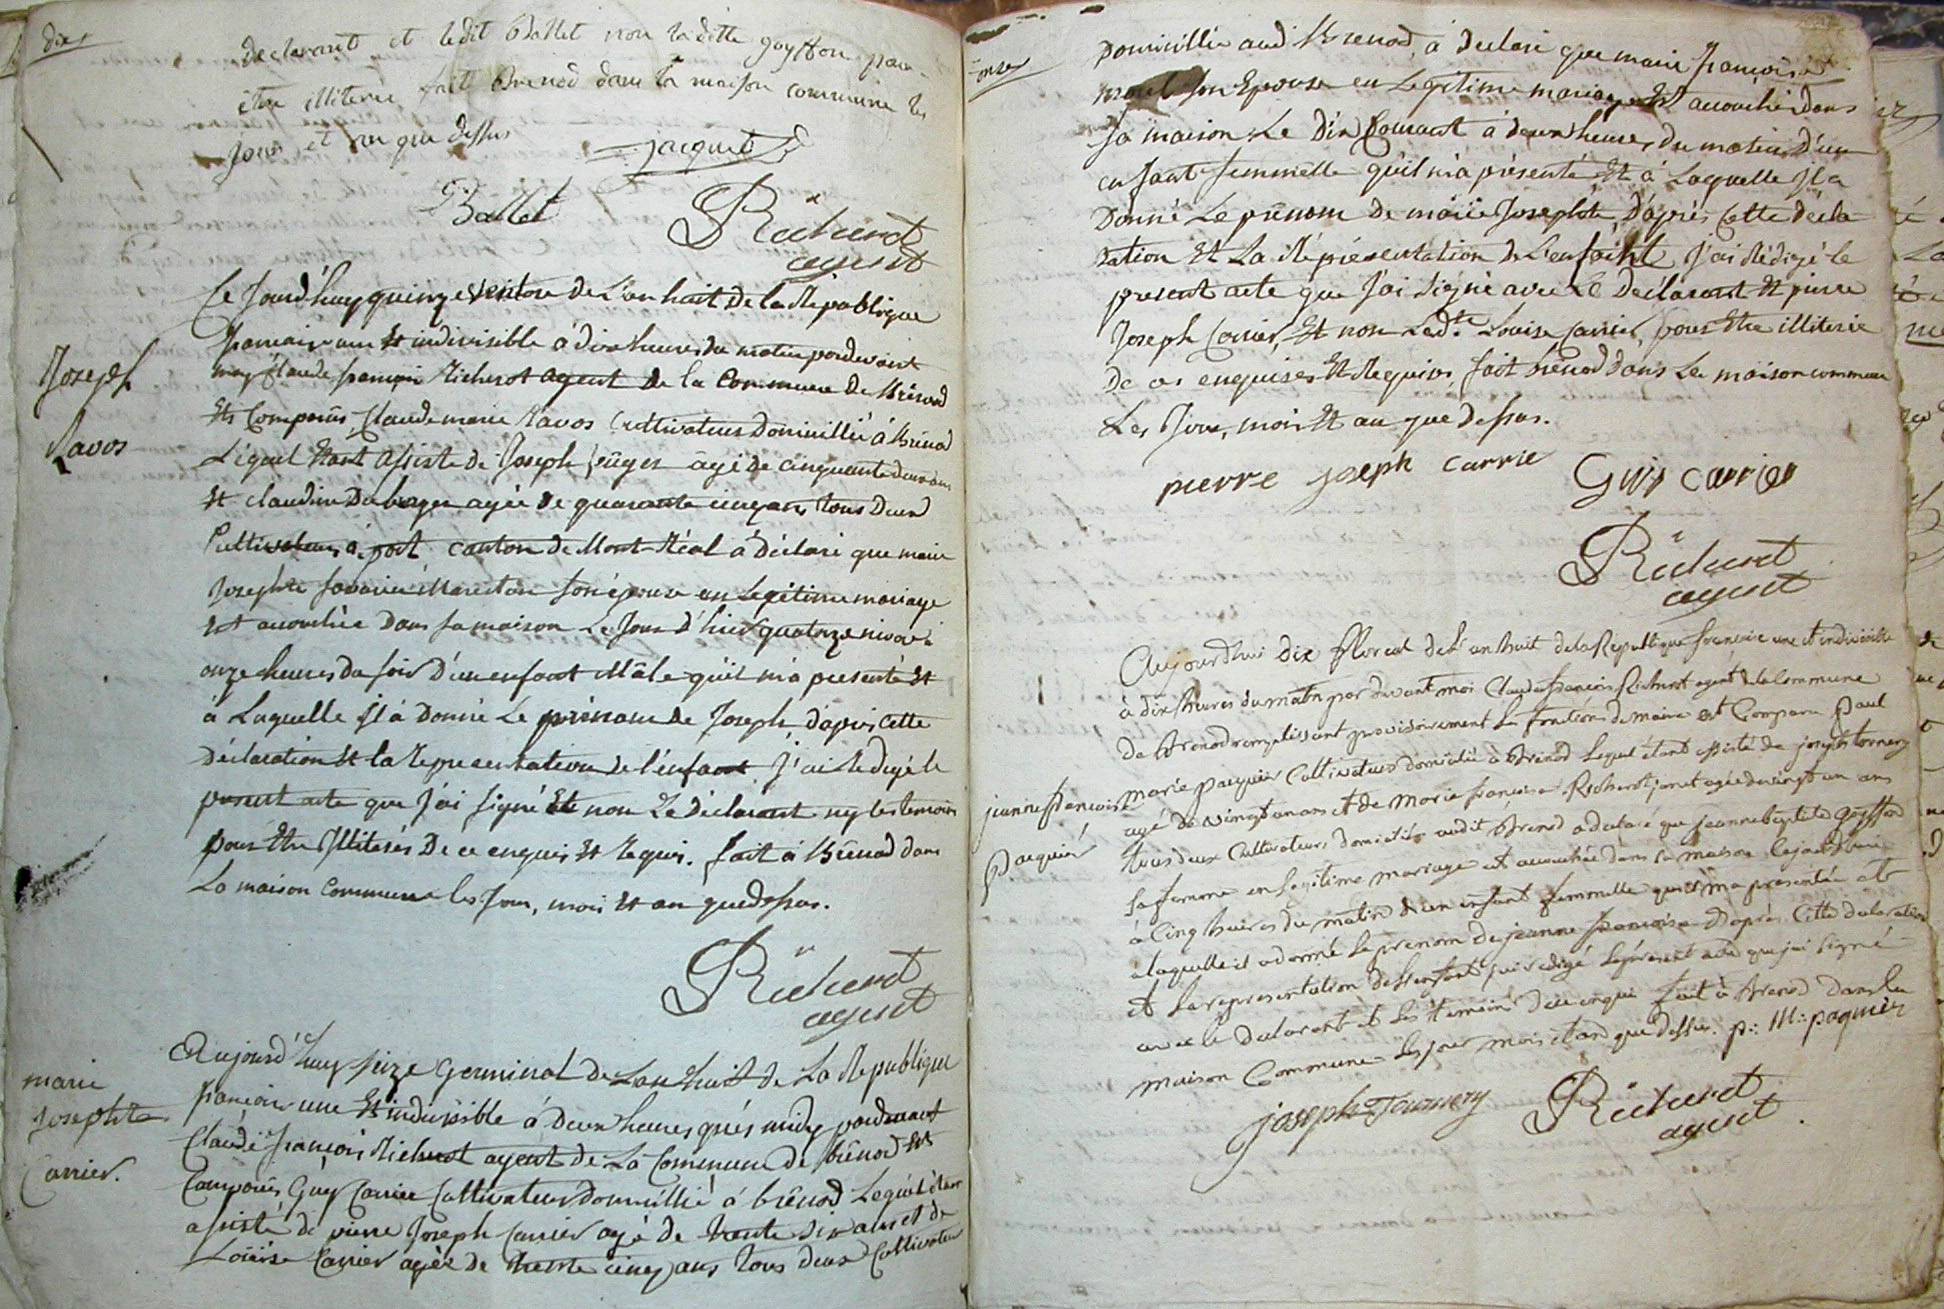 dix
declarant et ledit Ballet non la ditte goyffon pour
être illiteré fait Brenod dans la maison commune les
jour et an que dessus
jacquet
Ballet
Richerot
agent
Ce Jourd'huy quinze ventose de L'an huit de la Republique
francaise une Et indivisible à dix heures du matin pardevant
moy Claude françois Richerot agent de la Commune de Brénod
Est Comparus Claude marie Ravos Cultivateur Domicillié à Brénod
Lequel Etant Assisté de Joseph âgé de cinquante deux ans
Et claudine Duboyer agée de quarante cinq ans tous deux
Cultivateurs à port canton de Mont-Réal à Déclaré que marie
Josephte son épouse en Legitime mariage
Est accouchée Dans sa maison Le Jour d'hier quatorze à
onze heures du soir D'un enfant Mâle qu'il m'a presenté Et
à Laquelle Il à Donné Le prénom de Joseph, d'après cette
Déclaration Et la Representation de l'enfant J'ai Redigé le
present acte que J'ai signé Et non Le Déclarant ny les temoins
pour Etre Illiterés De ce enquis Et Requis. fait à Brénod dans
La maison Commune les Jour, mois Et an que dessus.
Joseph
Ravos
Richerot
agent
Aujourd'huy seize Germinal de L'an Huit de La Republique
francaise une Et indivisible à Deux heures près midy pardevant
Claude françois Richerot agent de La Commune de brénod Est
Comparus Guy Carrier Cultivateur Domicillié à brénod Lequel étant
assisté de pierre Joseph Carrier agé de trente six ans et de
Louise Carrier agée de trente cinq ans tous deux Cultivateur
marie
Josephte
Carrier.
onze
Domicillié aud Brenod, à Declaré que marie françoise
morel son Epouse en Legitime mariage Est accouchée dans
sa maison Le Dix Courant à deux heures du matin D'un
enfant femmelle qu'il m'a présenté Et à Laquelle Il a
Donné Le prénom De marie Josephte D'après Cette décla
ration Et La Réprésentation de L'enfant J'ai Rédigé le
present acte que J'ai signé avec Le Déclarant Et pierre
Joseph Carrier, Et non Ladte Louise Carrier, pour Etre illiterée
De ce enquises Et Requises, fait brenod Dans La maison commune
Les Jour, mois Et an que dessus.
pierre joseph carrie
Guy carrier
Richerot
agent
Aujourdhui dix floreal de L'an huit de la Republique françoise une et indivisible
à dix heures du matin par devant moi Claude françois Richerot agent de la Commune
de Brenod remplissant provisoirement les fonctions de maire est Comparu Paul
marie paquier Cultivateur domicilié à Brénod Lequel étant assisté de joseph tornery
agé de vingt un ans et de Marie françoise Richerot agée de vingt un ans
tous deux Cultivateurs domiciliés audit Brenod a declaré que jeanne baptiste Goyffon
sa femme en Legitime mariage est accouchée dans sa maison Cejourdhui
à Cinq heures du matin d'un enfant femmelle quil ma presentée et
à laquelle il a donné le prenom de jeanne françoise Daprès Cette declaration
et la representation de L'enfant jai redigé le present acte que jai signé
avec le declarant et les temoins de ce enquis fait à Brenod dans la
maison Commune les jour mois et an que dessus. p: M: paquier
jeanne françoise
paquier
joseph Tournery
Richerot
agent